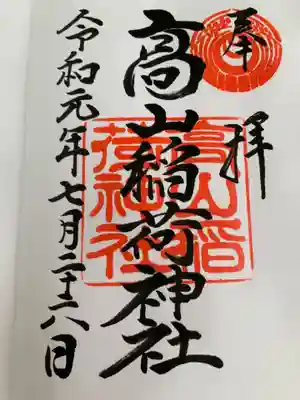 奉拝
高山稲荷神社
高山稲
荷神社
令和元年七月二十六日